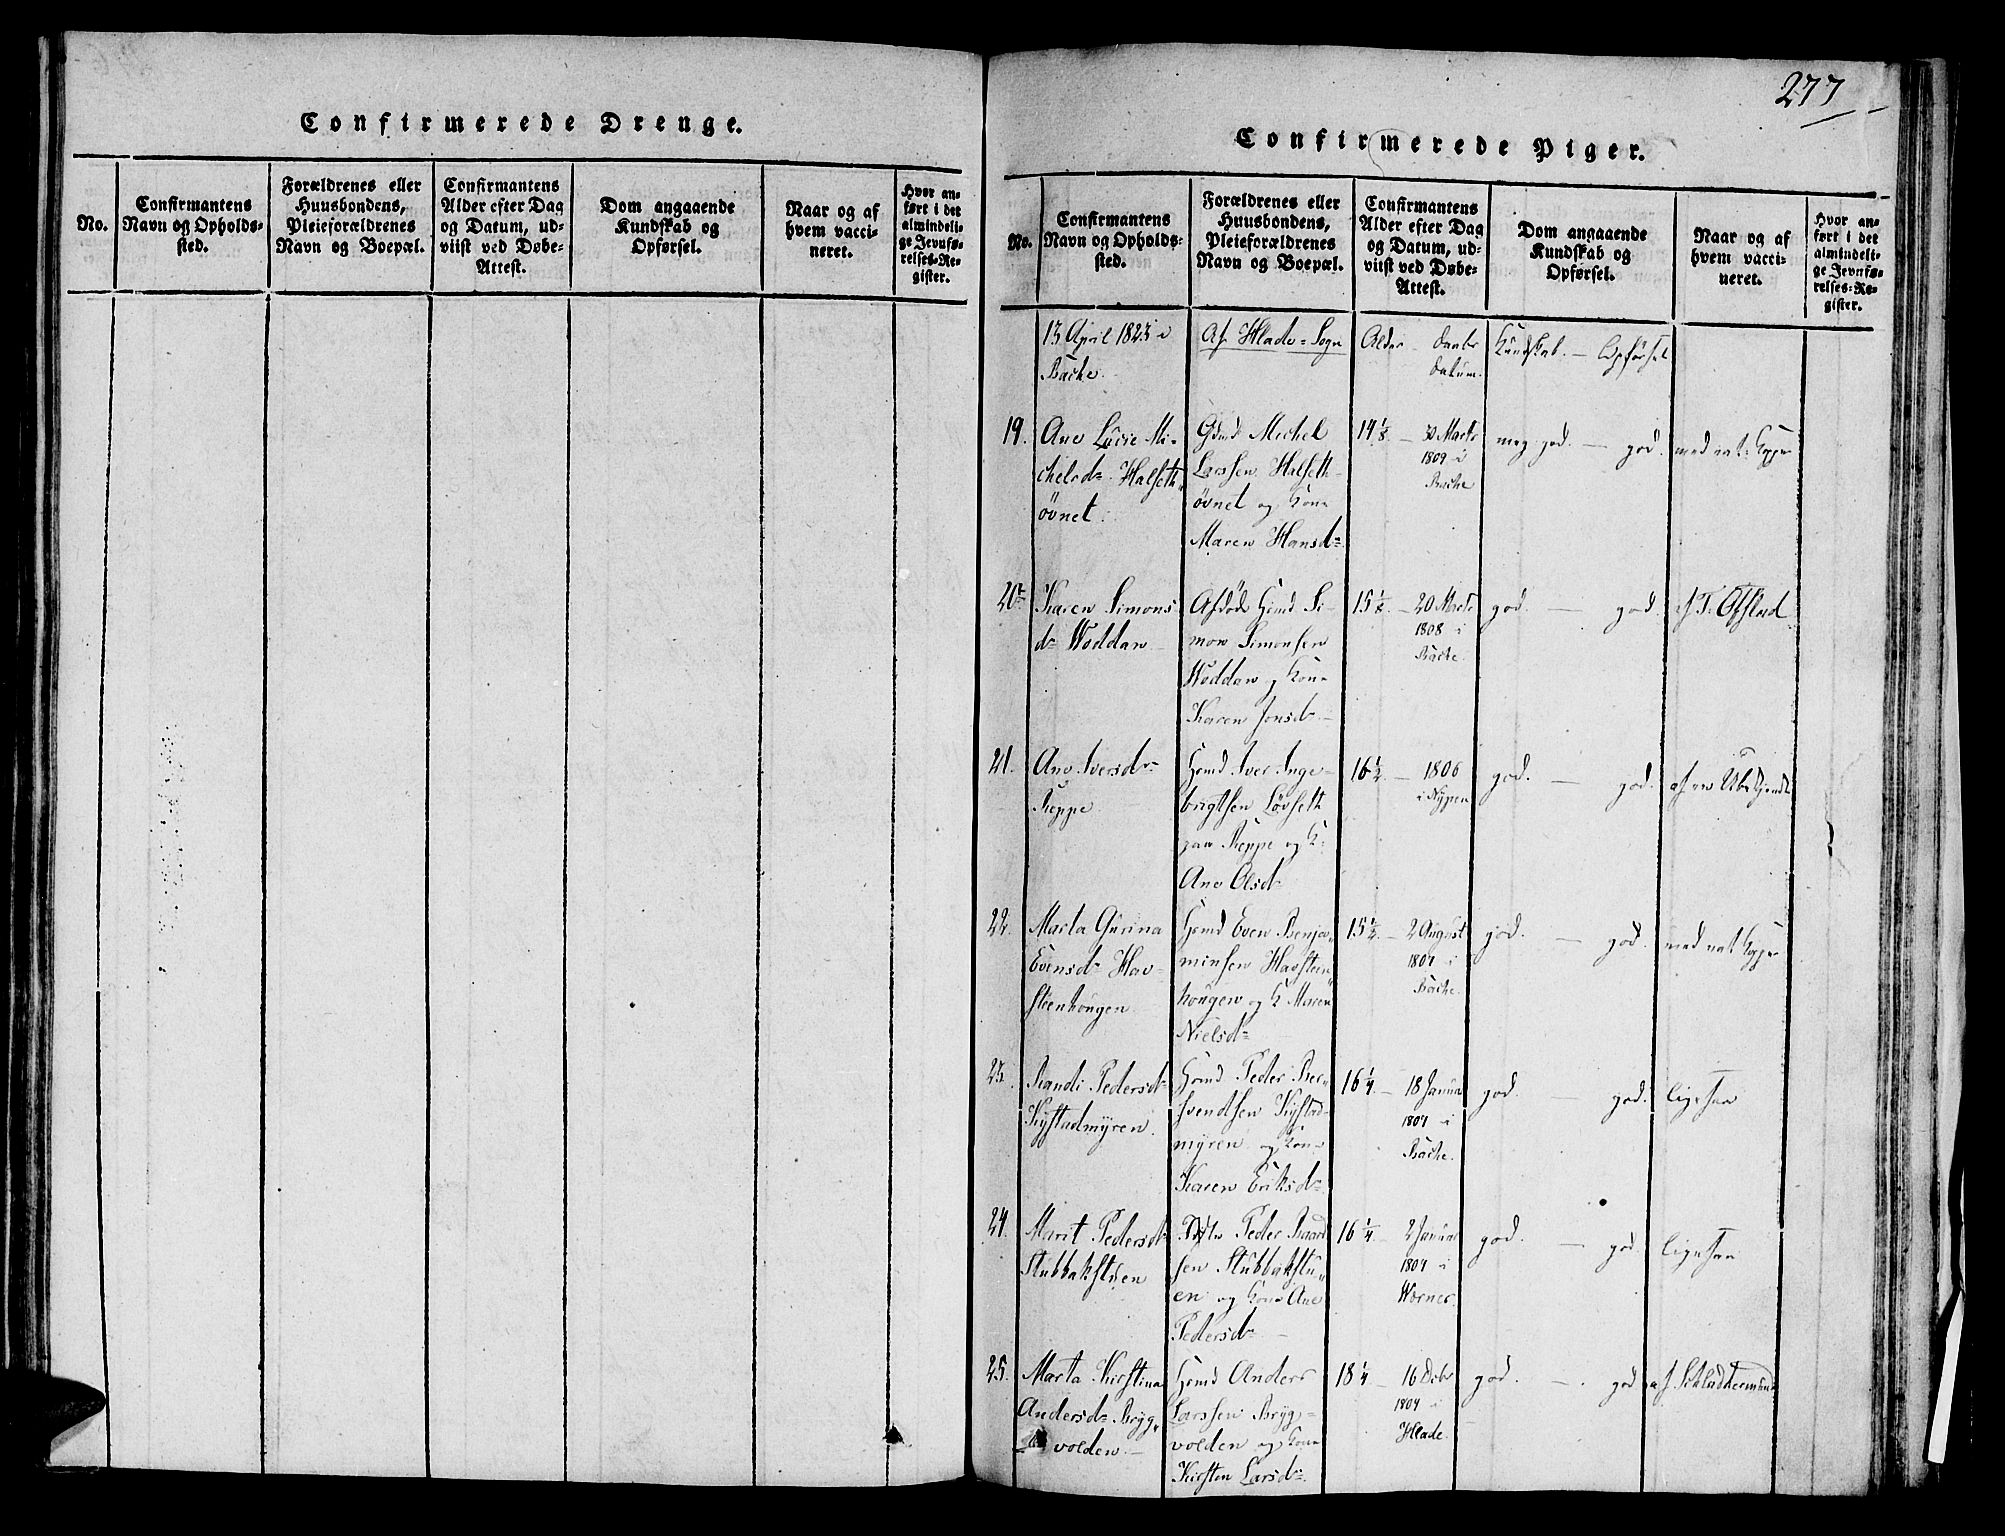 277
Confirmerede Drenge.
No.
Confirmantens
Navn og Opholds-
sted.
Forældrenes eller
Huusbondens,
Pleieforældrenes
Navn og Boepæl.
Confirmantens
Alder efter Dag
og Datum, ud-
viist ved Døbe-
Attest.
Dom angaaende
Kundskab og
Opførsel.
Naar og af
hvem vacci-
neret.
Hvor an-
ført i det
almindeli-
ge Jevnfø-
relses-Re-
gister.
Confirmerede Piger.
No.
Confirmantens
Navn og Opholds-
sted.
Forældrenes eller
Huusbondens,
Pleieforældrenes
Navn og Boepæl.
Confirmantens
Alder efter Dag
og Datum, ud-
viist ved Døbe-
Attest.
Dom angaaende
Kundskab og
Opførsel.
Naar og af
hvem vacci-
neret.
Hvor an-
ført i det
almindeli-
ge Jevnfø-
relses-Re-
gister.
13 April 1823 i
Bache.
Af Hlade-Sogn
Alder - Daabs
Datum.
Kundskab. - Opførsel
19.
Ane Lucie Mi-
chelsd. Halseth
øvnet.
Gmd Michel
Larssen Halseth-
øvnet og Kon
Maren Hansd.
14 1/8 - 30 Marts
1809 i
Bache
meg god. - god.
med nat. Kopper
20
Karen Simons
d. Woddan
Afdøde Hmd Si-
mon Simonsen
Woddan og Kon
Karen Jonsd.
15 1/8. - 20 Marts
1808 i
Bache.
god. - god.
af T. Ofstad
21.
Ane Iversd.
Reppe
Hmd Iver Inge-
brigtsen Løvseth
paa Reppe og K.
Ane Olsd.
16 1/2. - 1806
i Nypen
god. - god.
af en Ubekjendt
22.
Marta Gurina
Evensd. Hav-
steenhougen
Hmd Even Benja-
minsen Havsteen
hougen og K Maren
Nielsd.
15 1/2. - 2 August
1807 i
Bache.
god. - god.
med nat Kopper
23.
Randi Pedersd.
Kystadmyren.
Hmd Peder Ber-
svendsen Kystad-
myren og Kon
Karen Eriksd.
16 1/4. - 18 Janua
1807 i
Bache.
god. - god.
ligesaa
24.
Marit Pedersd.
Stubbakstuen
Peder Baard
sen Stubbakstu-
en og Kon Ane
Pedersd.
16 1/4 - 2 Janua
1807 i
Worner.
god. - god.
ligesaa
25.
Marta Kirstina
Andersd. Bryg-
volden.
Hmd Anders
Larssen Bryg-
volden og Kon
Kirsten Larsd.
18 1/4 - 16 Octr
1804 i
Hlade.
god. - god
af